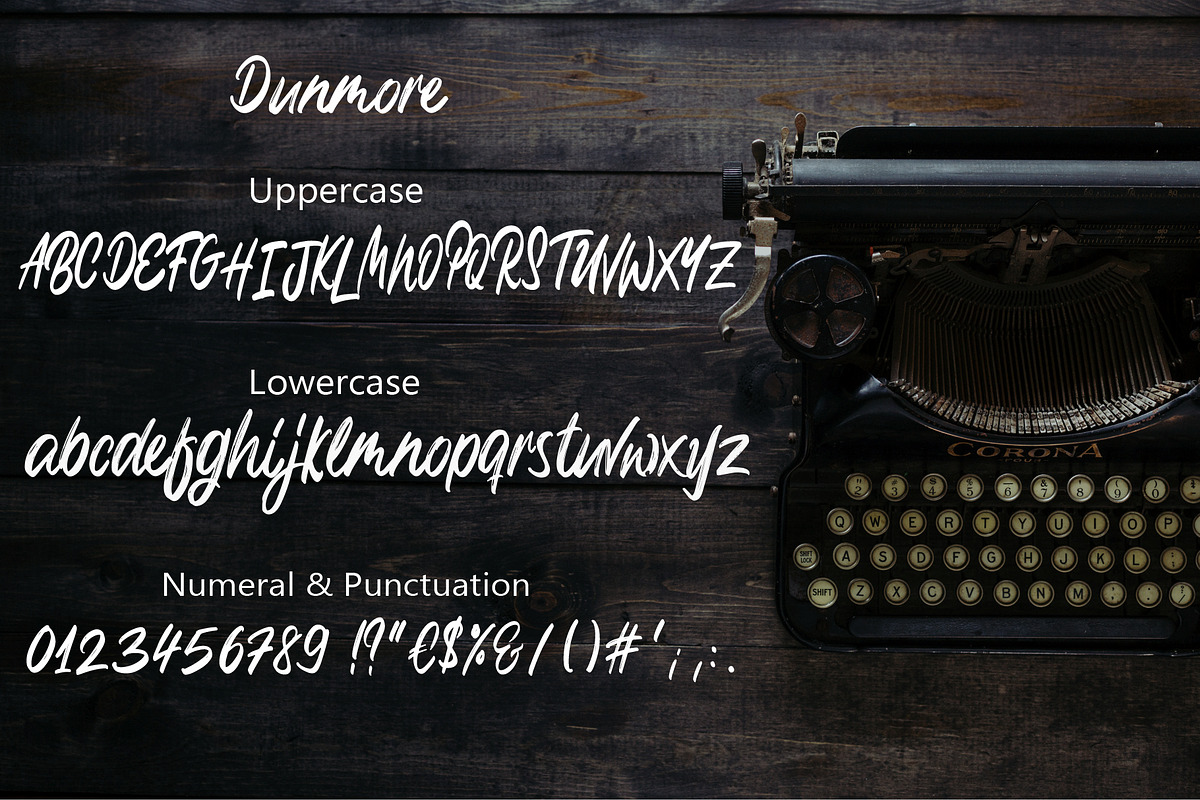 Dunmore
Uppercase
ABCDEFGHIJKLMNOPQRSTUVWXYZ
Lowercase
abcdefghijklmnopqrstuvwxyz
Numeral & Punctuation
0123456789 !?"€$%&/()#';,:.
CORONA
2 3 $ 4 % 5 _ 6 & 7 ' 8 ( 9 ) 0
Q W E R T Y U I O P
SHIFT LOCK A S D F G H J K L ;
SHIFT Z X C V B N M